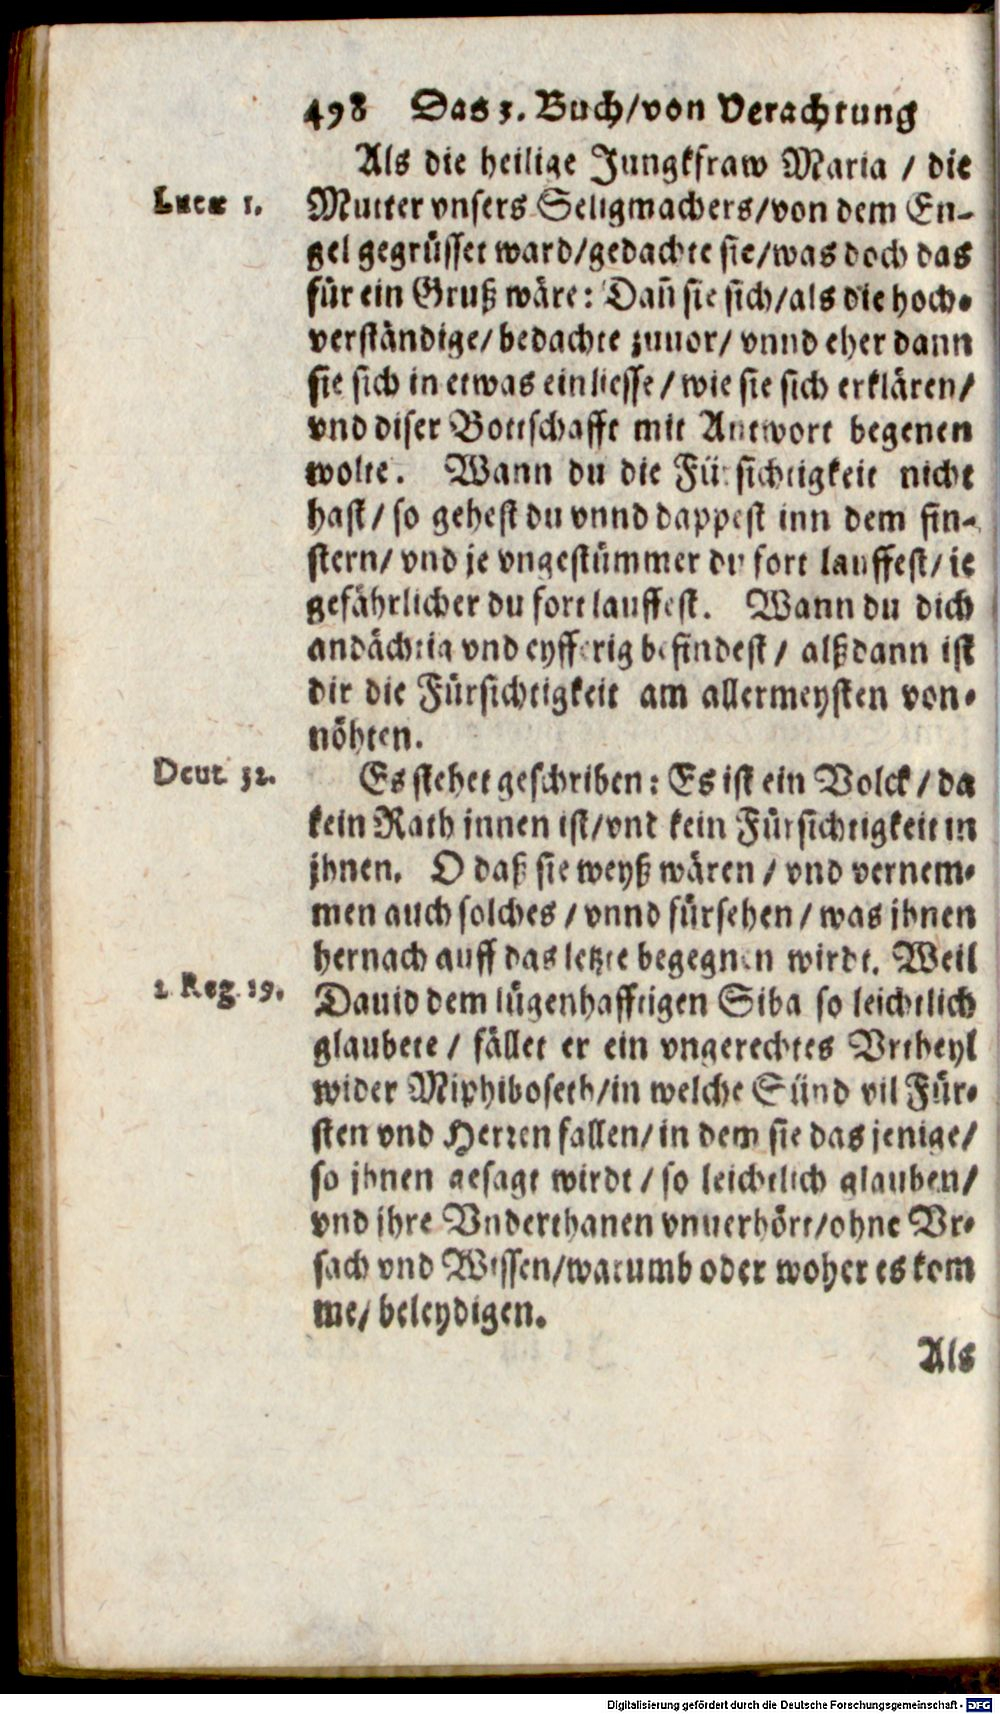 498 Das 3. Buch/von Verachtung
Als die heilige Jungkfraw Maria / die
Lucæ 1.
Mutter vnsers Seligmachers/von dem En-
gel gegrüsset ward/gedachte sie/was doch das
für ein Gruß wäre: Dañ sie sich/als die hoch-
verständige/ bedachte zuuor/ vnnd eher dann
sie sich in etwas einliesse / wie sie sich erklären/
vnd diser Bottschafft mit Antwort begenen
wolte. Wann du die Fürsichtigkeit nicht
hast / so gehest du vnnd dappest inn dem fin-
stern/ vnd je vngestümmer du fort lauffest/ je
gefährlicher du fort lauffest. Wann du dich
andächtig vnd eyfferig befindest / alßdann ist
dir die Fürsichtigkeit am allermeysten von-
nöhten.
Deut. 32.
Es stehet geschriben: Es ist ein Volck / da
kein Rath jnnen ist/vnd kein Fürsichtigkeit in
jhnen. O daß sie weyß wären / vnd vernem-
men auch solches / vnnd fürsehen / was jhnen
hernach auff das letzte begegnen wirdt. Weil
2 Reg. 19.
Dauid dem lügenhafftigen Siba so leichtlich
glaubete / fället er ein vngerechtes Vrtheyl
wider Miphiboseth/in welche Sünd vil Für-
sten vnd Herren fallen/ in dem sie das jenige/
so jhnen gesagt wirdt / so leichtlich glauben/
vnd jhre Vnderthanen vnuerhört/ohne Vr-
sach vnd Wissen/warumb oder woher es kom
me/ beleydigen.
Als
Digitalisierung gefördert durch die Deutsche Forschungsgemeinschaft - DFG